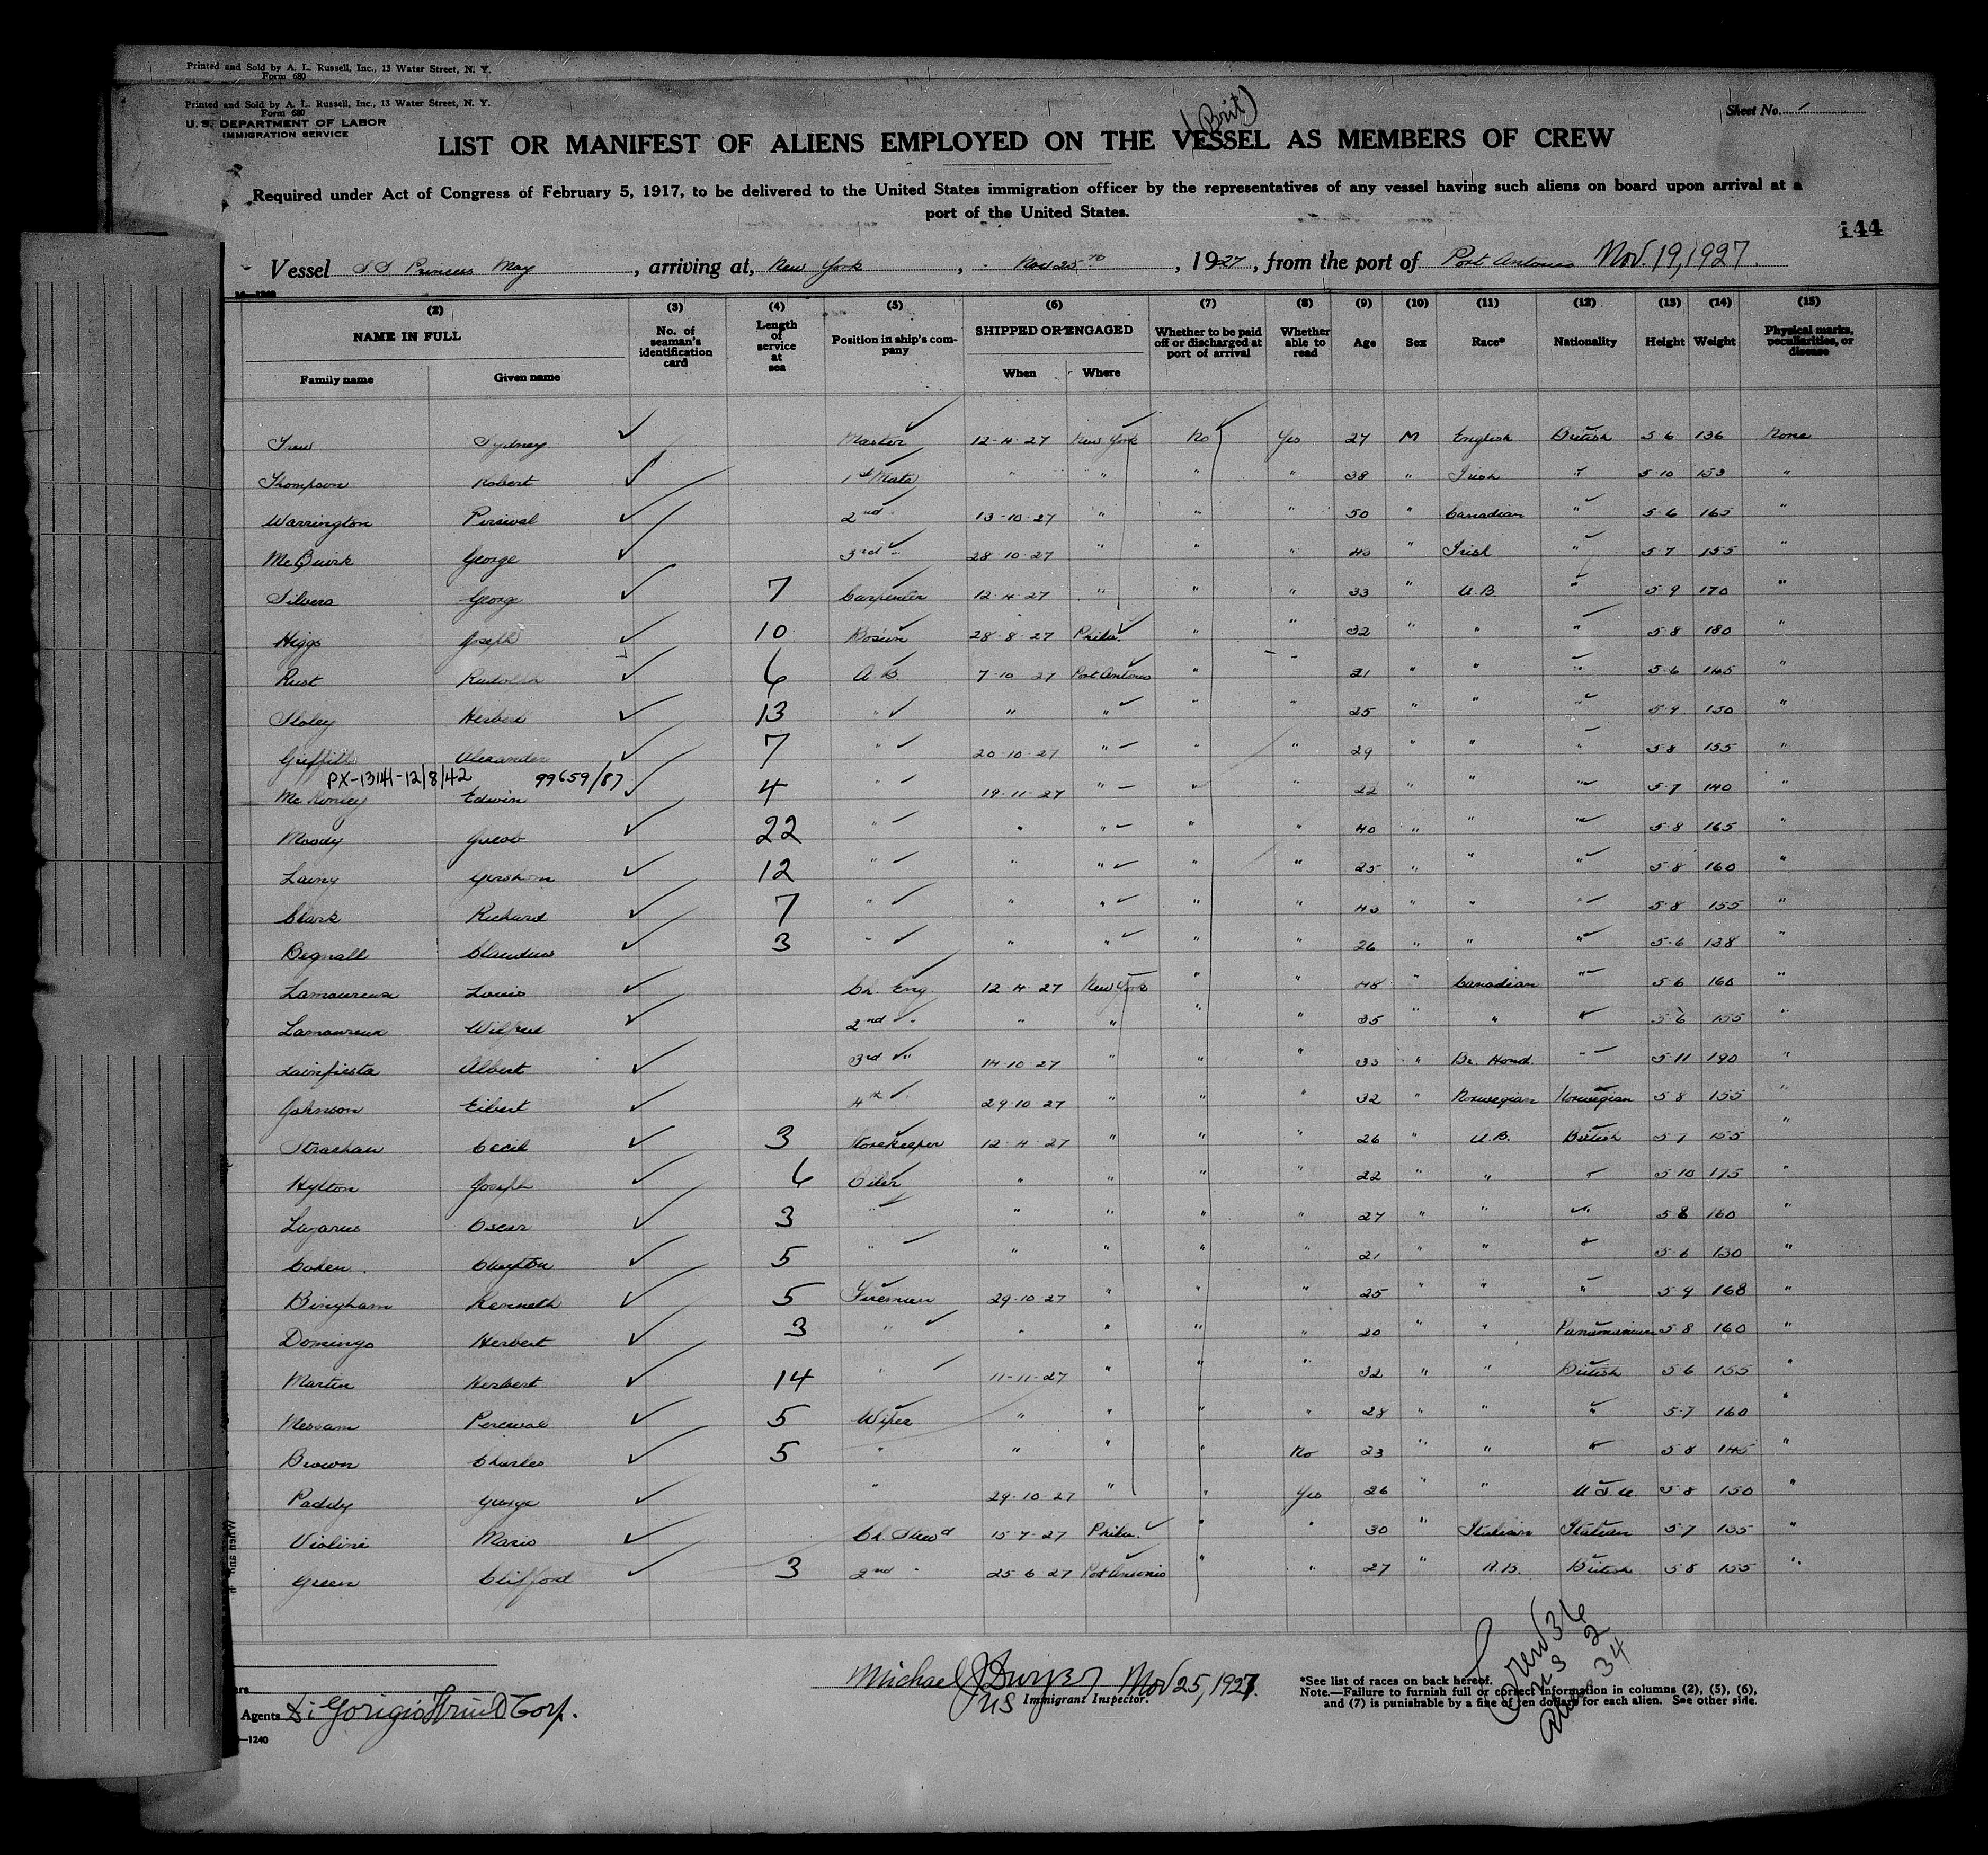 Printed and Sold by A. L. Russell, Inc., 13 Water Street, N. Y.
Form 680
Printed and Sold by A. L. Russell, Inc., 13 Water Street, N. Y.
Form 680
U. S. DEPARTMENT OF LABOR
IMMIGRATION SERVICE
Sheet No. 1
(Brit)
LIST OR MANIFEST OF ALIENS EMPLOYED ON THE VESSEL AS MEMBERS OF CREW
Required under Act of Congress of February 5, 1917, to be delivered to the United States immigration officer by the representatives of any vessel having such aliens on board upon arrival at a
port of the United States.
144
Vessel SS Princess May, arriving at, New York, Nov 25th, 1927, from the port of Port Antonio Nov. 19, 1927
(2) (3) (4) (5) (6) (7) (8) (9) (10) (11) (12) (13) (14) (15)
NAME IN FULL No. of seaman's identification card Length of service at sea Position in ship's company SHIPPED OR ENGAGED Whether to be paid off or discharged at port of arrival Whether able to read Age Sex Race* Nationality Height Weight Physical marks, peculiarities, or disease
Family name Given name When Where
Sydney Master 12-4-27 New York No Yes 27 M English British 5 6 136 None
Thompson Robert 1st Mate " " " " 38 " Irish " 5 10 153 "
Warrington Percival 2nd " 13-10-27 " " " 50 " Canadian " 5 6 165 "
McQuirk George 3rd " 28-10-27 " " " 40 " Irish " 5 7 155 "
Silvera George 7 Carpenter 12-4-27 " " " 33 " A.B. " 5 9 170 "
Higgs Joseph 10 Bosun 28-8-27 Phila. " " 32 " " " 5 8 180 "
Rust Rudolph 6 A.B. 7-10 27 Port Antonio " " 21 " " " 5 6 145 "
Herbert 13 " " " " " 25 " " " 5 9 150 "
Griffith Alexander 7 " 20-10-27 " " " 29 " " " 5 8 155 "
PX-13141-12/8/42 99659/87
Edwin 4 " 19-11-27 " " " 22 " " " 5 7 140 "
Moody Jacob 22 " " " " " 40 " " " 5 8 165 "
Laing Gershom 12 " " " " " 25 " " " 5 8 160 "
Clark Richard 7 " " " " " 40 " " " 5 8 155 "
Begnall Claudius 3 " " " " " 26 " " " 5 6 138 "
Lamoureux Louis Ch. Eng 12 4 27 New York " " 48 " Canadian " 5 6 160 "
Lamoureux Wilfred 2nd " " " " " 35 " " " 5 6 155 "
Albert 3rd " 14-10-27 " " " 33 " Br. Hond. " 5 11 190 "
Johnson Eibert 4th " 29-10-27 " " " 32 " Norwegian Norwegian 5 8 155 "
Strachan Cecil 3 Storekeeper 12-4-27 " " " 26 " A.B. British 5 7 155 "
Hylton Joseph 6 Oiler " " " " 22 " " " 5 10 175 "
Lazarus Oscar 3 " " " " " 27 " " " 5 8 160 "
Cohen Clayton 5 " " " " " 21 " " " 5 6 130 "
Bingham Kenneth 5 Fireman 29-10-27 " " " 25 " " " 5 9 168 "
Domingo Herbert 3 " " " " " 20 " " Panamanian 5 8 160 "
Martin Herbert 14 " 11-11-27 " " " 32 " " British 5 6 155 "
Messam Percival 5 Wiper " " " " 28 " " " 5-7 160 "
Brown Charles 5 " " " " No 23 " " " 5 8 145 "
Paddy George " 29-10-27 " " Yes 26 " " U.S.A. 5 8 150 "
Violini Mario Ch. Stewd 15-7-27 Phila. " " 30 " Italian Italian 5 7 135 "
Green Clifford 3 2nd " 25 6 27 Port Antonio " " 27 " A.B. British 5 8 155 "
Crew 36
US 2
Alien 34
Michael J Dwyer Nov 25, 1927.
US Immigrant Inspector.
*See list of races on back hereof.
Note.—Failure to furnish full or correct information in columns (2), (5), (6),
and (7) is punishable by a fine of ten dollars for each alien. See other side.
Agents Di Giorgio Fruit Corp.
—1240